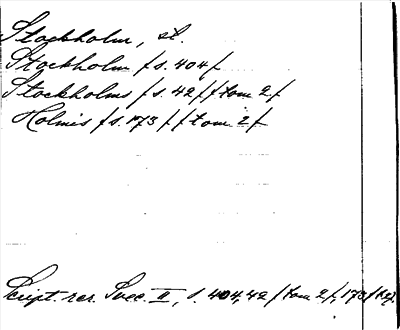 Stockholm, st.
Stockholm /s. 404/
Stockholms /s. 42/ /tom 2/
Holmis /s. 173/ /tom 2/
Script. rer. Svec. II, s. 404, 42 /tom 2/, 173